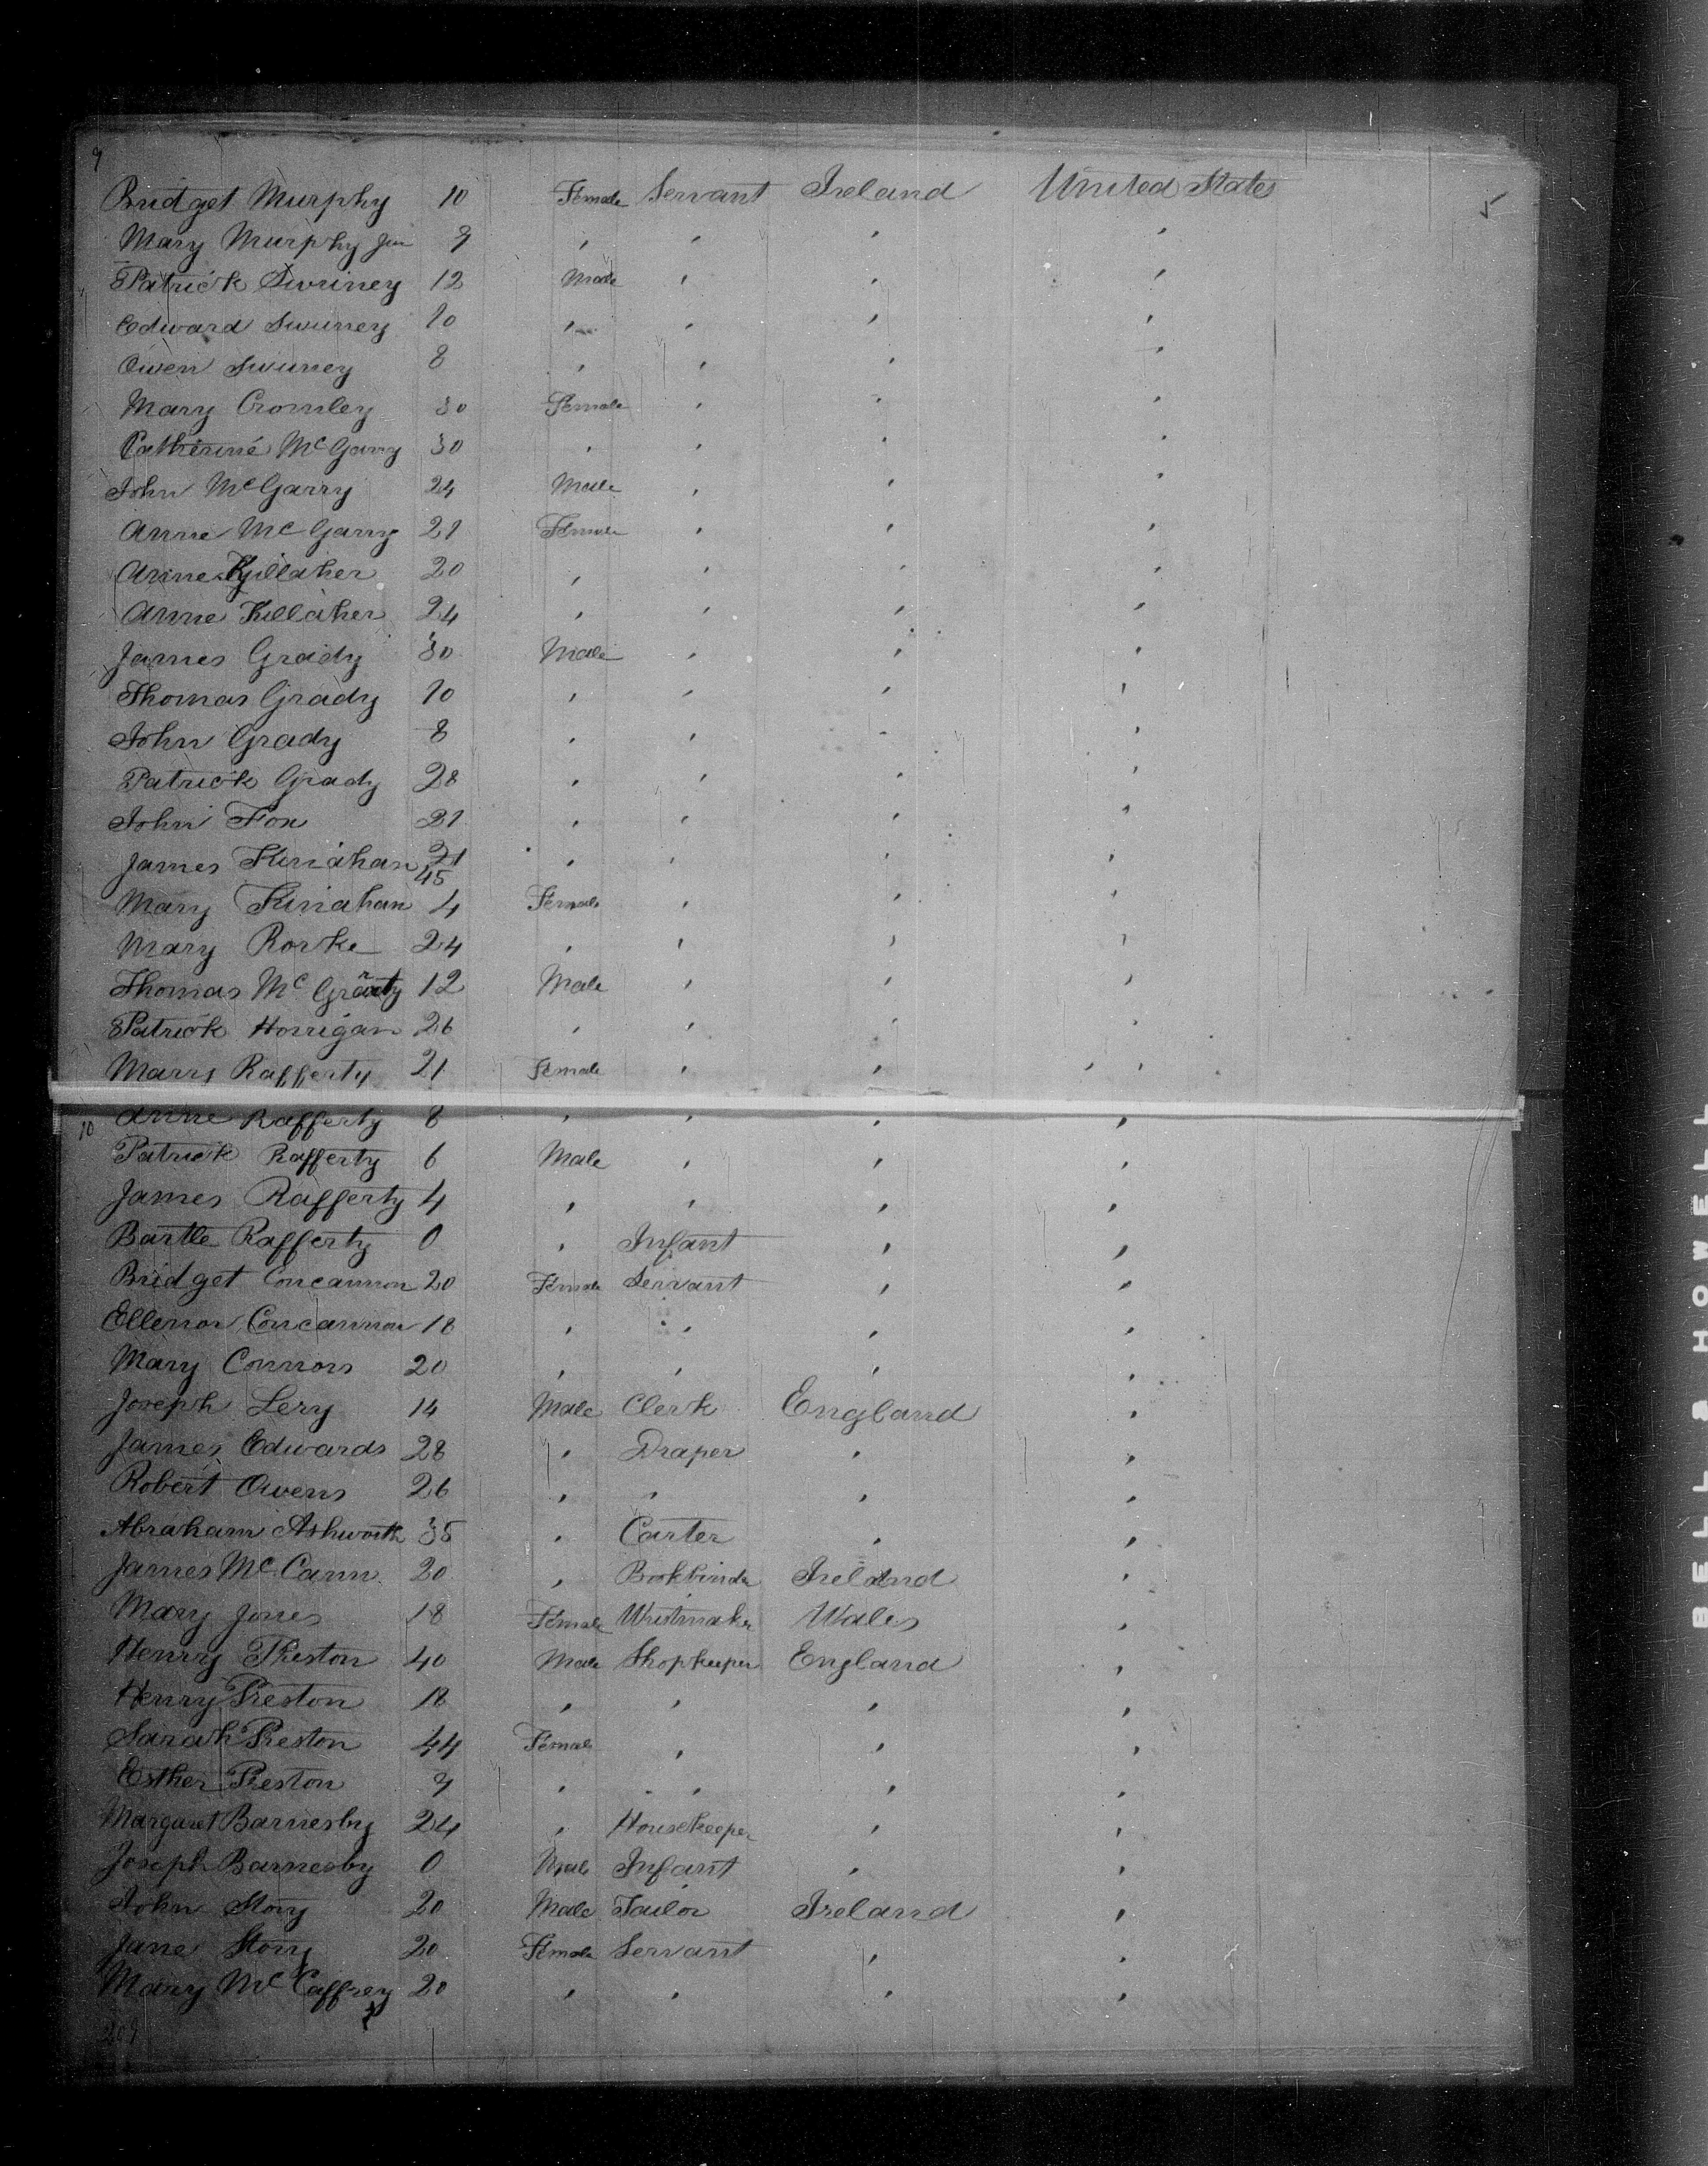 9
Bridget Murphy 10 Female Servant Ireland United States
Mary Murphy Jun 9 " " " "
Patrick Swiney 12 Male " " "
Edward Swiney 10 " " " "
Owen Swiney 8 " " " "
Mary Cromley 30 Female " " "
Catherine McGarry 30 " " " "
John McGarry 24 Male " " "
Anne McGarry 21 Female " " "
Anne Killaher 20 " " " "
Anne Killaher 24 " " " "
James Grady 30 Male " " "
Thomas Grady 10 " " " "
John Grady 8 " " " "
Patrick Grady 28 " " " "
John Fox 21 " " " "
James Kinahan 21 45 " " " "
Mary Kinahan 4 Female " " "
Mary Rorke 24 " " " "
Thomas Mc 12 Male " " "
Patrick Horrigan 26 " " " "
Mary Rafferty 21 Female " " " "
10 Anne Rafferty 8 " " " "
Patrick Rafferty 6 Male " " "
James Rafferty 4 " " " "
Bartle Rafferty 0 " Infant " "
Bridget Concannon 20 Female Servant " "
Ellenor Concannon 18 " " " "
Mary Connors 20 " " " "
Joseph Lery 14 Male Clerk England "
James Edwards 28 " Draper " "
Robert Owens 26 " " " "
Abraham Ashworth 35 " Carter " "
James McCann 20 " Bookbinder Ireland "
Mary Jones 18 Female Wales "
Henry Preston 40 Male Shopkeeper England "
Henry Preston 18 " " " "
Sarah Preston 44 Female " " "
Esther Preston 9 " " " "
Margaret Barnesby 24 " Housekeeper " "
Joseph Barnesby 0 Male Infant " "
John Story 20 Male Tailor Ireland "
Jane Story 20 Female Servant " "
Mary McCaffrey 20 " " " "
BELL & HOWELL